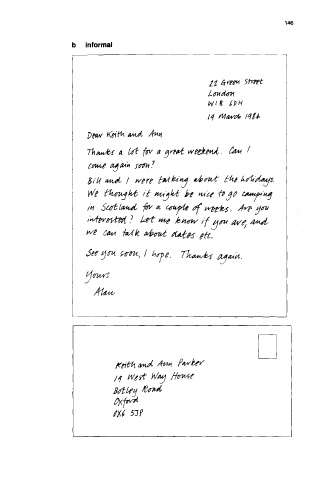 146
b informal
22 Green Street
London
W1B 6DH
19 March 1986
Dear Keith and Ann
Thanks a lot for a great weekend. Can I
come again soon?
Bill and I were talking about the holidays.
We thought it might be nice to go camping
in Scotland for a couple of weeks. Are you
interested? Let me know if you are, and
we can talk about dates etc.
See you soon, I hope. Thanks again.
Yours
Alan
Keith and Ann Parker
19 West Way House
Botley Road
Oxford
OX6 5JP